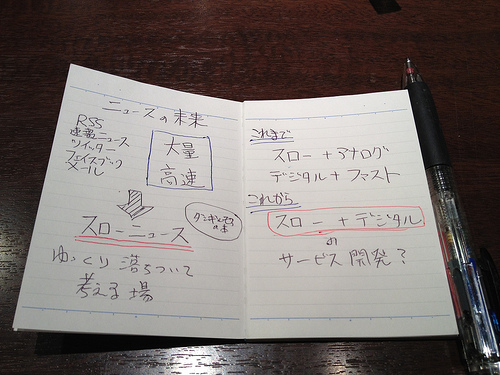 ニュースの未来
RSS
速報ニュース
ツイッター
フェイスブック
メール
大量
高速
スローニュース
ゆっくり 落ちついて
考える 場
これまで
スロー + アナログ
デジタル + ファスト
これから
スロー + デジタル
の
サービス 開発?